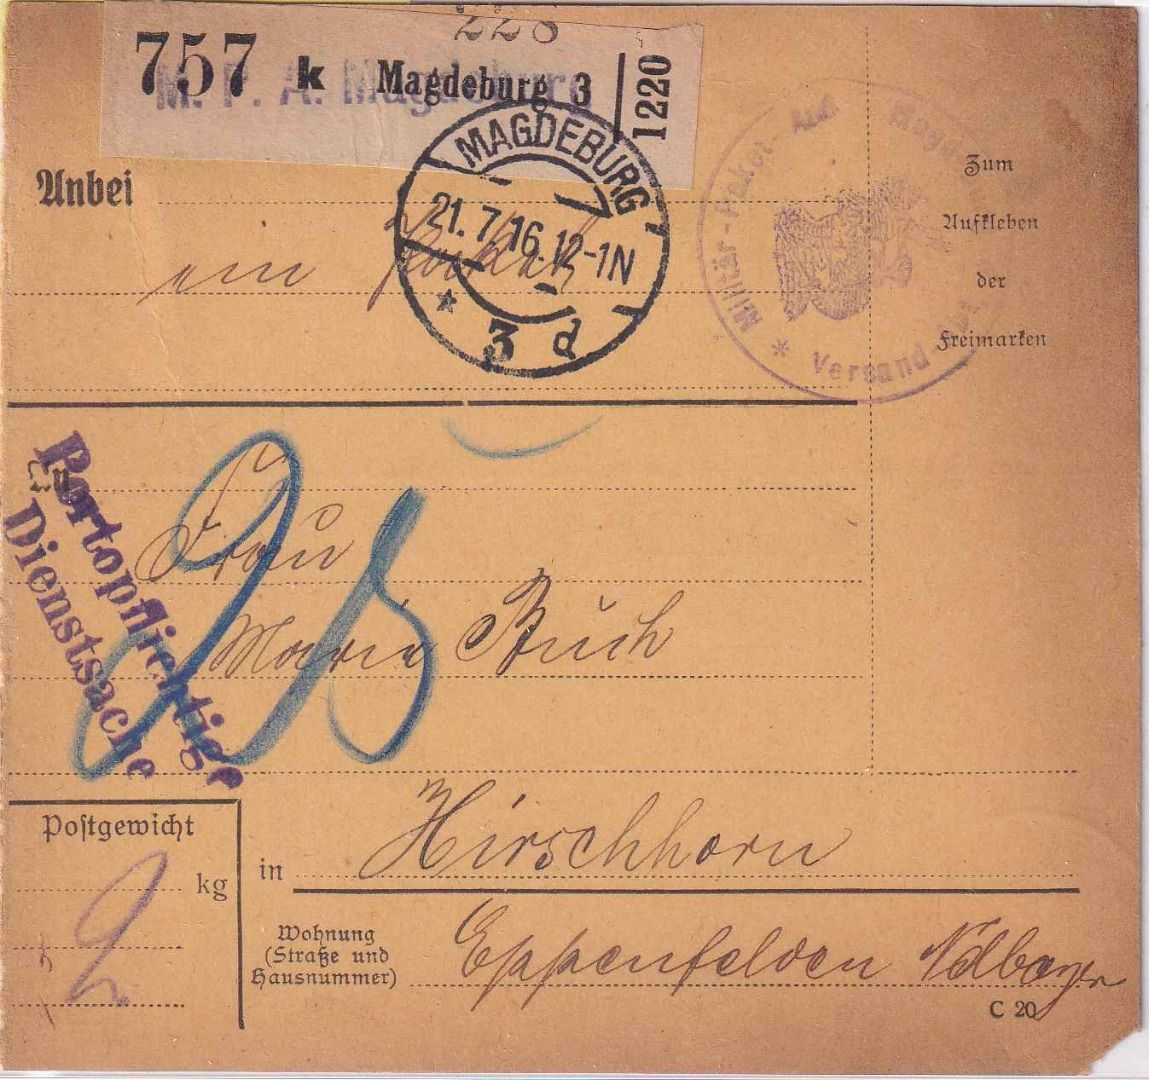 228
757 k Magdeburg 3 1220
M. P. A. Magdeburg
MAGDEBURG
21.7.16.12-1N
* 3 d
Militär-Paket-Amt Magdeburg
* Versand
Anbei
ein Paket
Zum
Aufkleben
der
Freimarken
An
Portopflichtige
Dienstsache
25
Frau
Marie Buch
Postgewicht
2 kg
in Hirschhorn
Wohnung
(Straße und
Hausnummer)
Eppenfelden Ndbayern
C 20